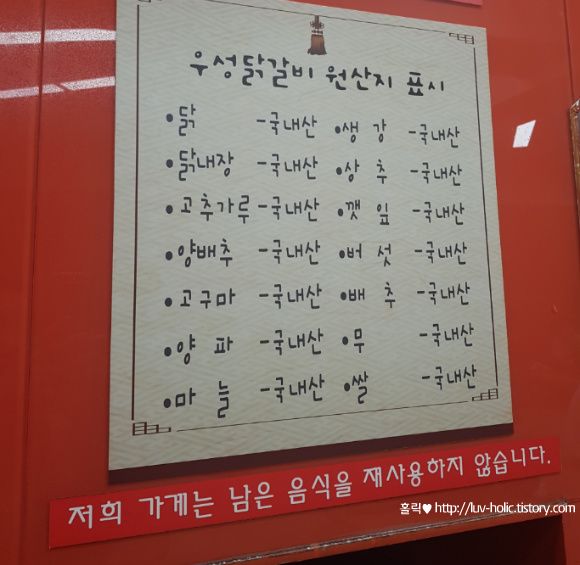 우성닭갈비 원산지 표시
•닭 -국내산 •생 강 -국내산
•닭내장 -국내산 •상 추 -국내산
•고추가루 -국내산 •깻 잎 -국내산
•양배추 -국내산 •버 섯 -국내산
•고구마 -국내산 •배 추 -국내산
•양 파 -국내산 •무 -국내산
•마 늘 -국내산 •쌀 -국내산
저희 가게는 남은 음식을 재사용하지 않습니다.
홀릭♥ http://luv-holic.tistory.com